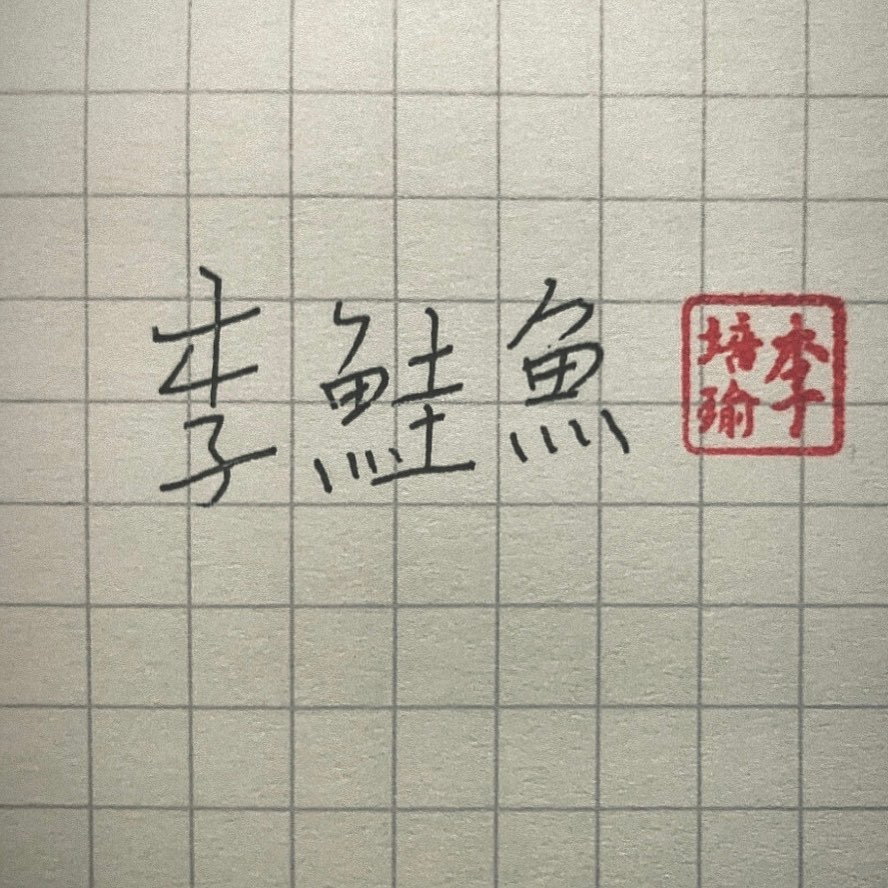 李鮭魚
李培瑜